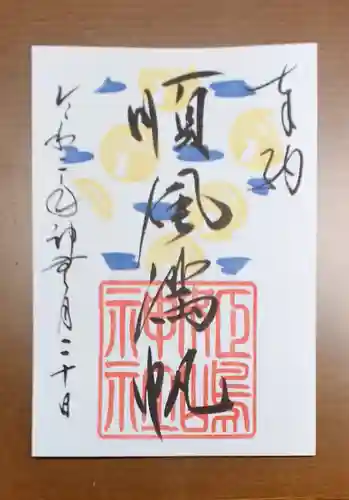 奉納
順風満帆
令和二年神無月二十日
江島神社